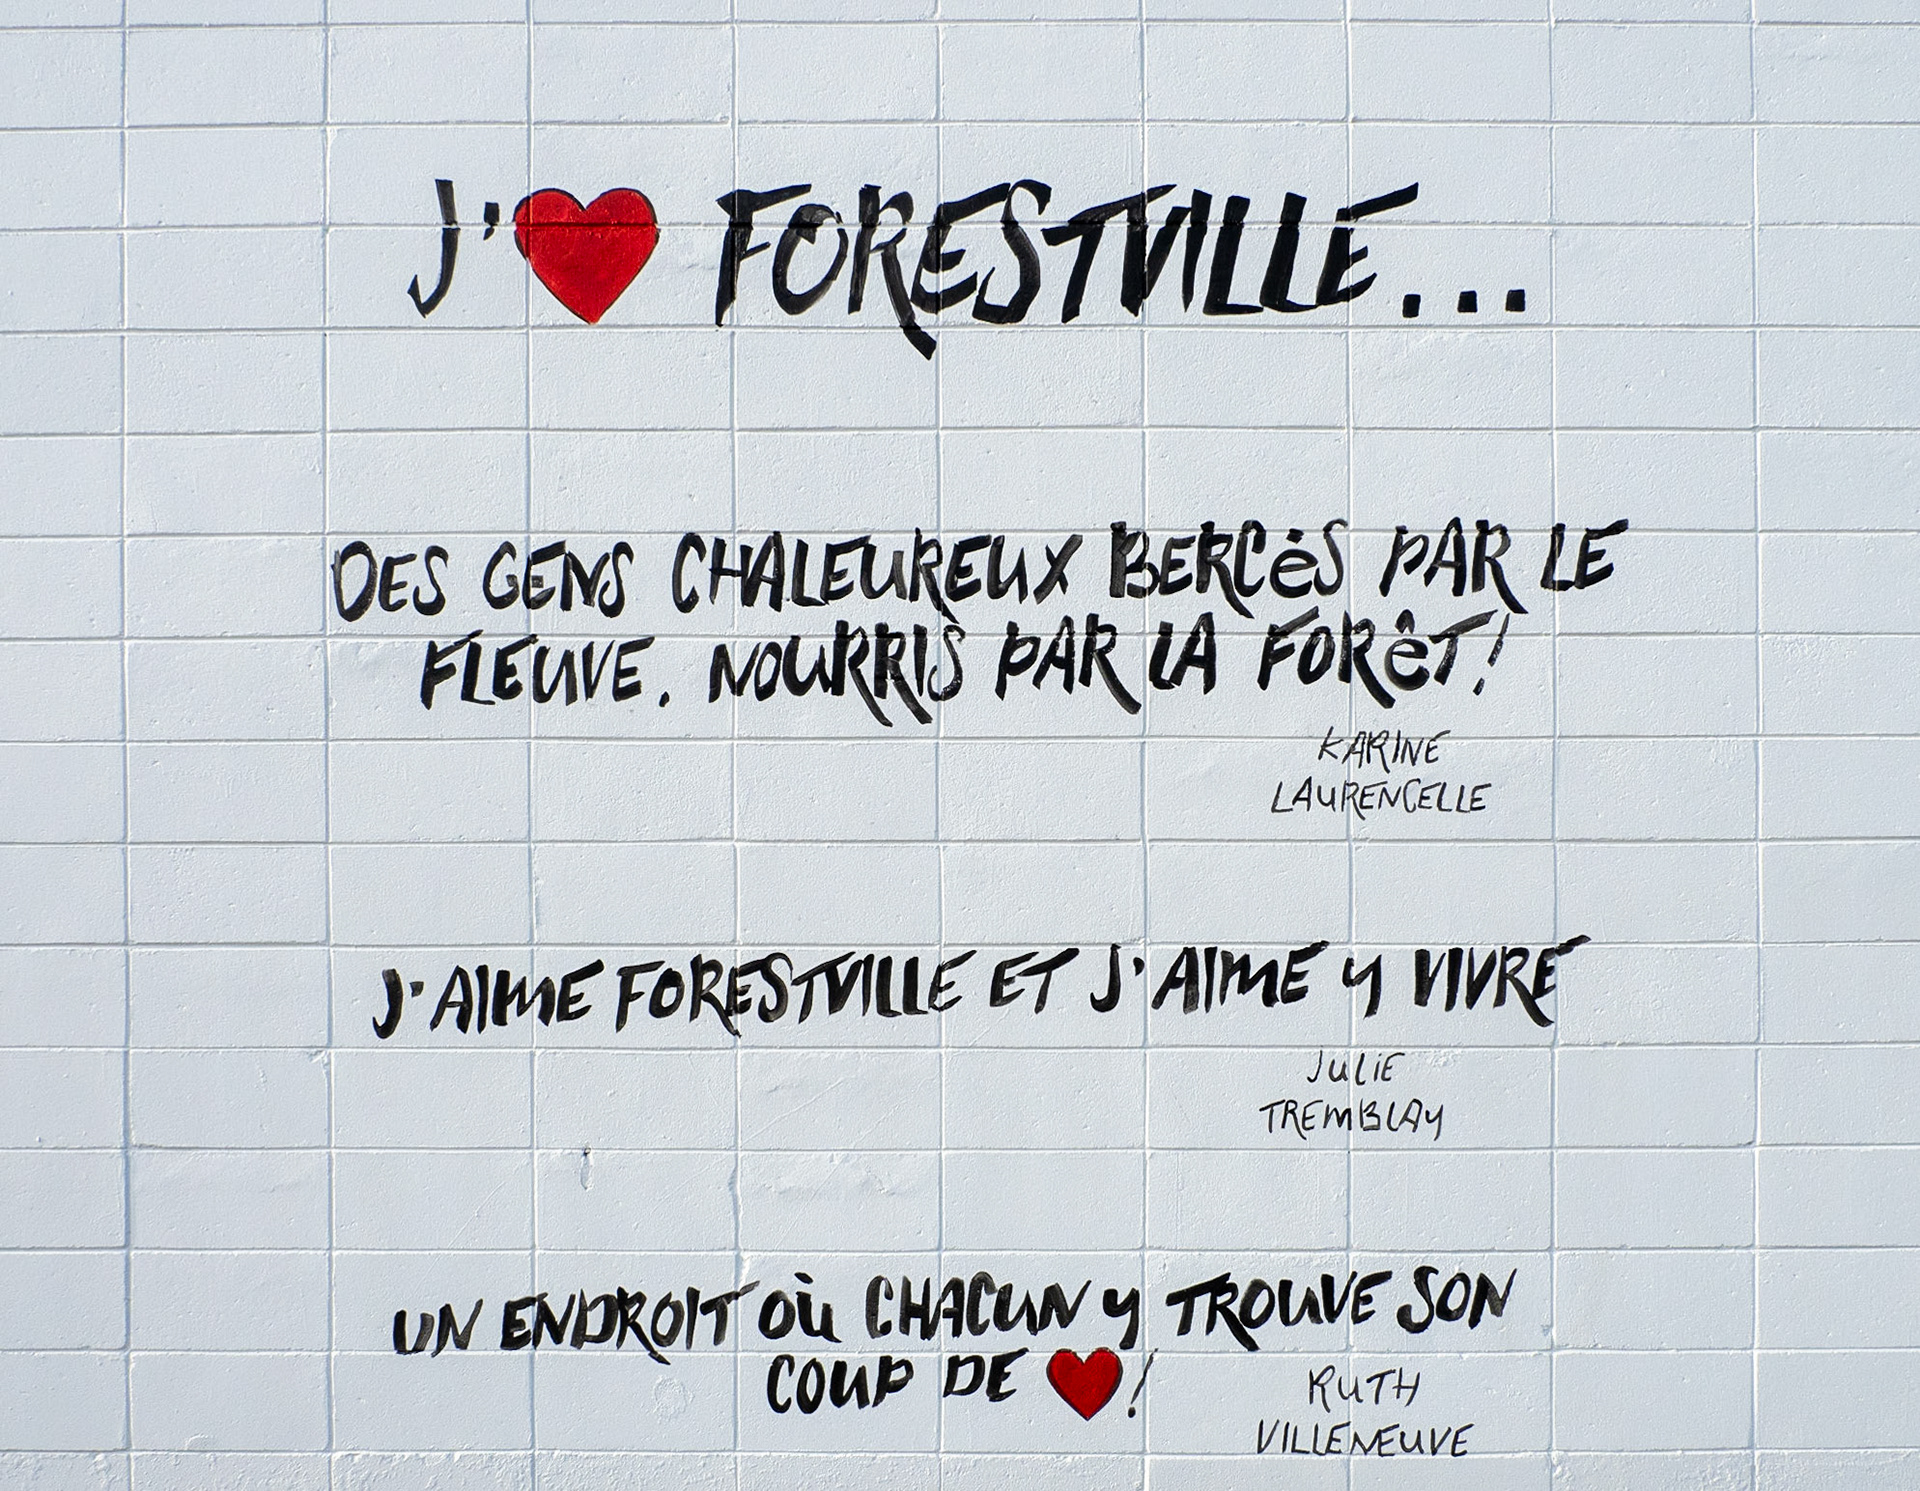 J'❤ FORESTVILLE...
DES GENS CHALEUREUX BERCÉS PAR LE
FLEUVE. NOURRIS PAR LA FORÊT!
KARINE
LAURENCELLE
J'AIME FORESTVILLE ET J'AIME Y VIVRE
JULIE
TREMBLAY
UN ENDROIT OÙ CHACUN Y TROUVE SON
COUP DE ❤!
RUTH
VILLENEUVE